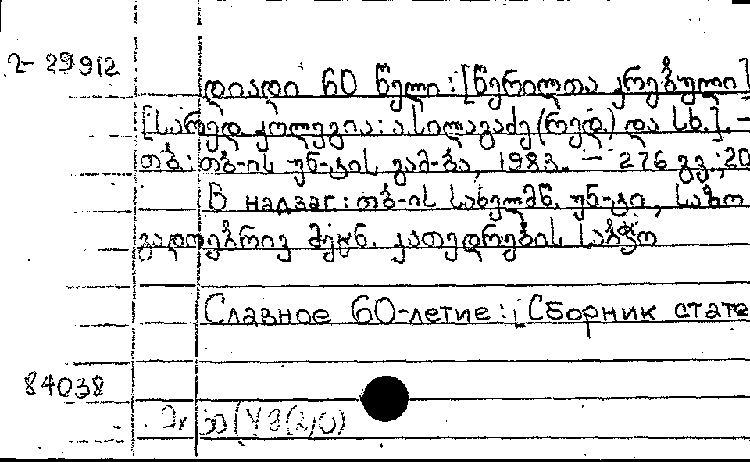 2-29912
დიადი 60 წელი : [წერილთა კრებული]
[სარედ. კოლეგია: ა. სილაგაძე (რედ.) და სხ.]. –
თბ.: თბ-ის უნ-ტის გამ-ბა, 1983. – 276 გვ.; 20
В надзаг.: თბ-ის სახელმწ. უნ-ტი, საზო
გადოებრივ მეცნ. კათედრების საბჭო
Славное 60-летие: [Сборник стате
84038